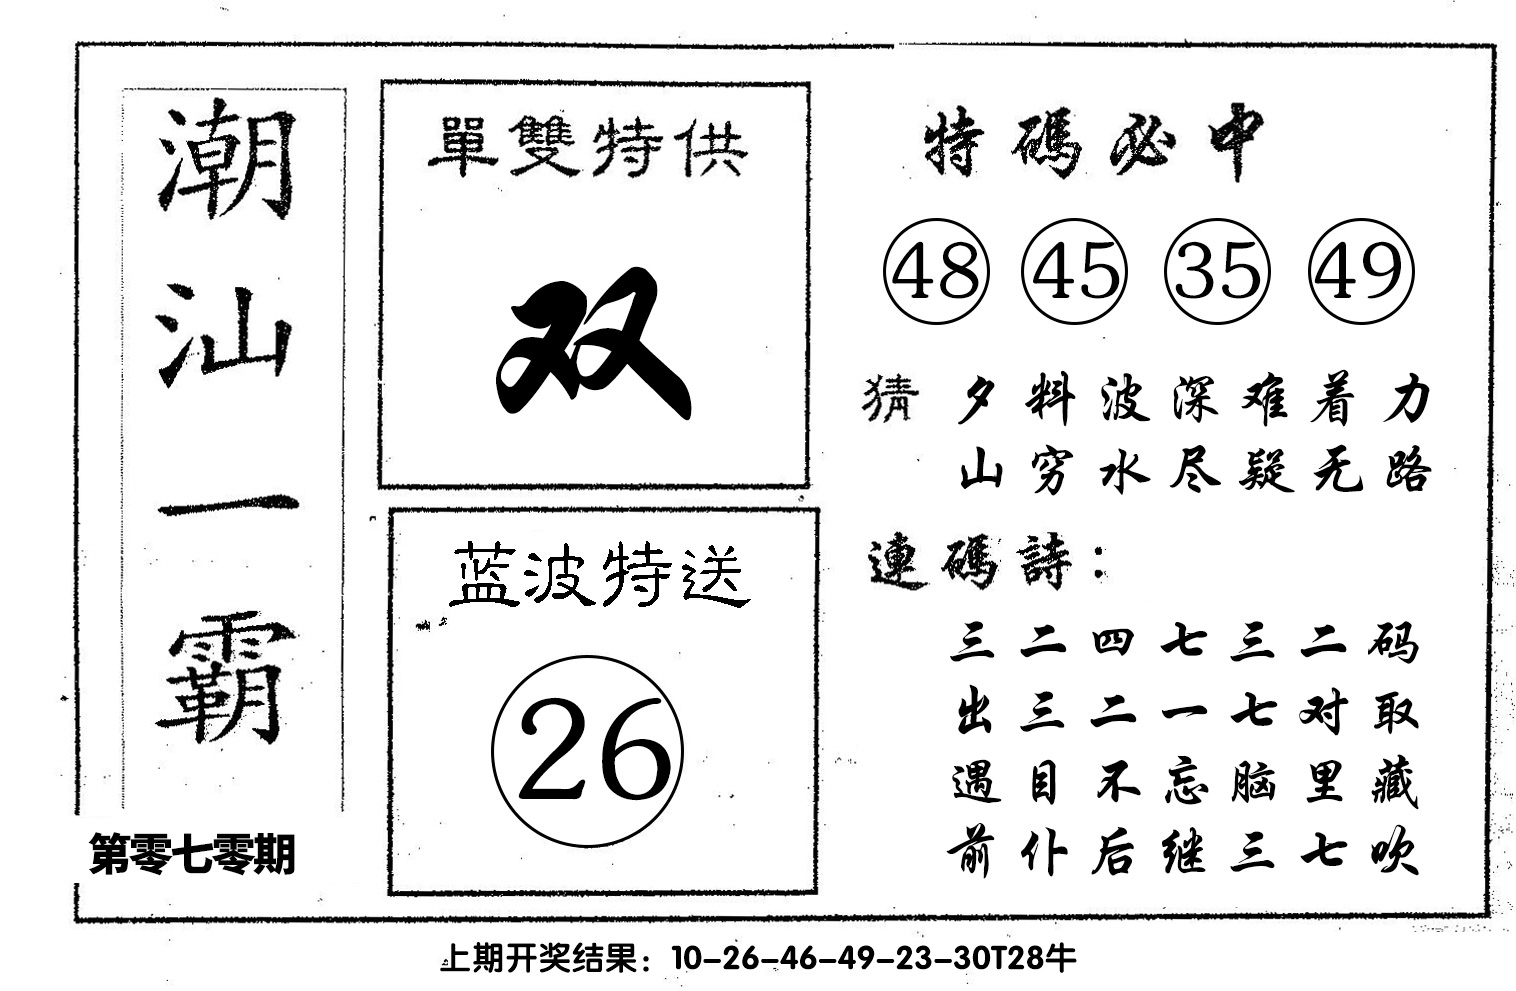 潮汕一霸
第零七零期
單雙特供
双
蓝波特送
26
特碼必中
48 45 35 49
猜 夕料波深难着力
山穷水尽疑无路
連碼詩：
三二四七三二码
出三二一七对取
遇目不忘脑里藏
前仆后继三七吹
上期开奖结果：10-26-46-49-23-30T28牛